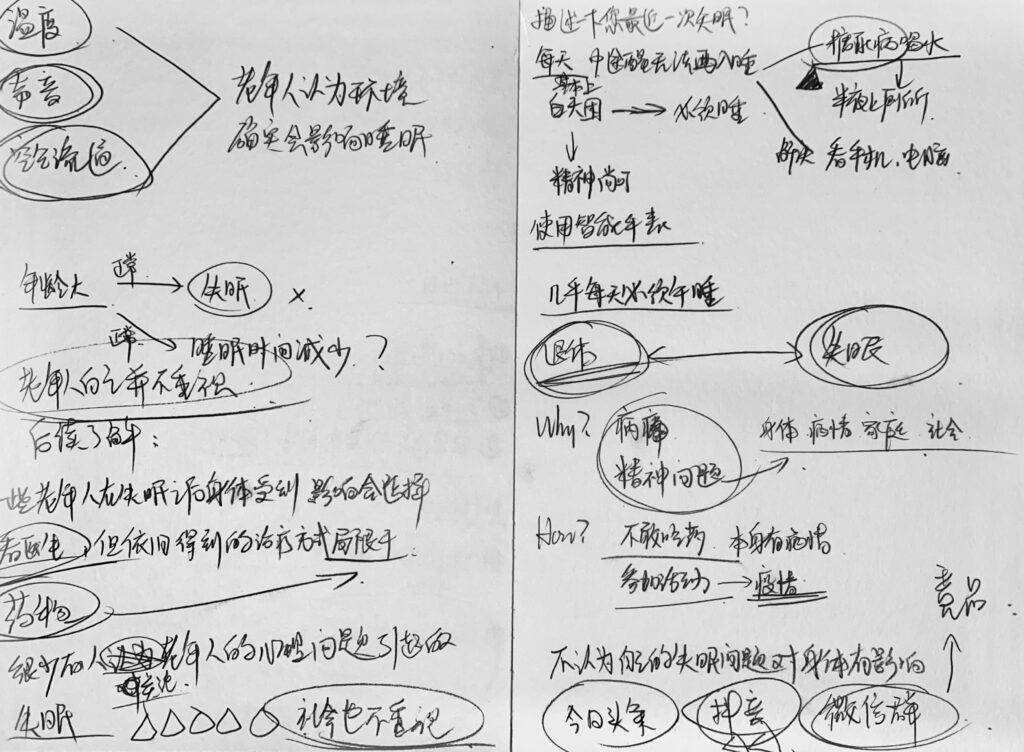 温度
声音
空气流通
老年人认为环境
确实会影响睡眠
年龄大 正常 失眠 ×
正常 睡眠时间减少？
老年人自己并不重视
后续了解：
一些老年人在失眠之后身体受到影响会选择
看医生，但依旧得到的治疗方式局限于
药物
很少有人 老年人的心理问题引起的
失眠 △△△△△ 社会也不重视
描述一下您最近一次失眠？
每天 中途醒无法再入睡
基本上
白天困 → 必须睡
精神尚可
糖尿病喝水
半夜上厕所
看手机、电脑
使用智能手表
几乎每天必须午睡
退休 失眠
Why? 病痛
精神问题
身体 病情 家庭 社会
How? 不敢吃药 本身有病情
参加活动 → 疫情
竞品
不认为自己的失眠问题对身体有影响
今日头条 抖音 微信群